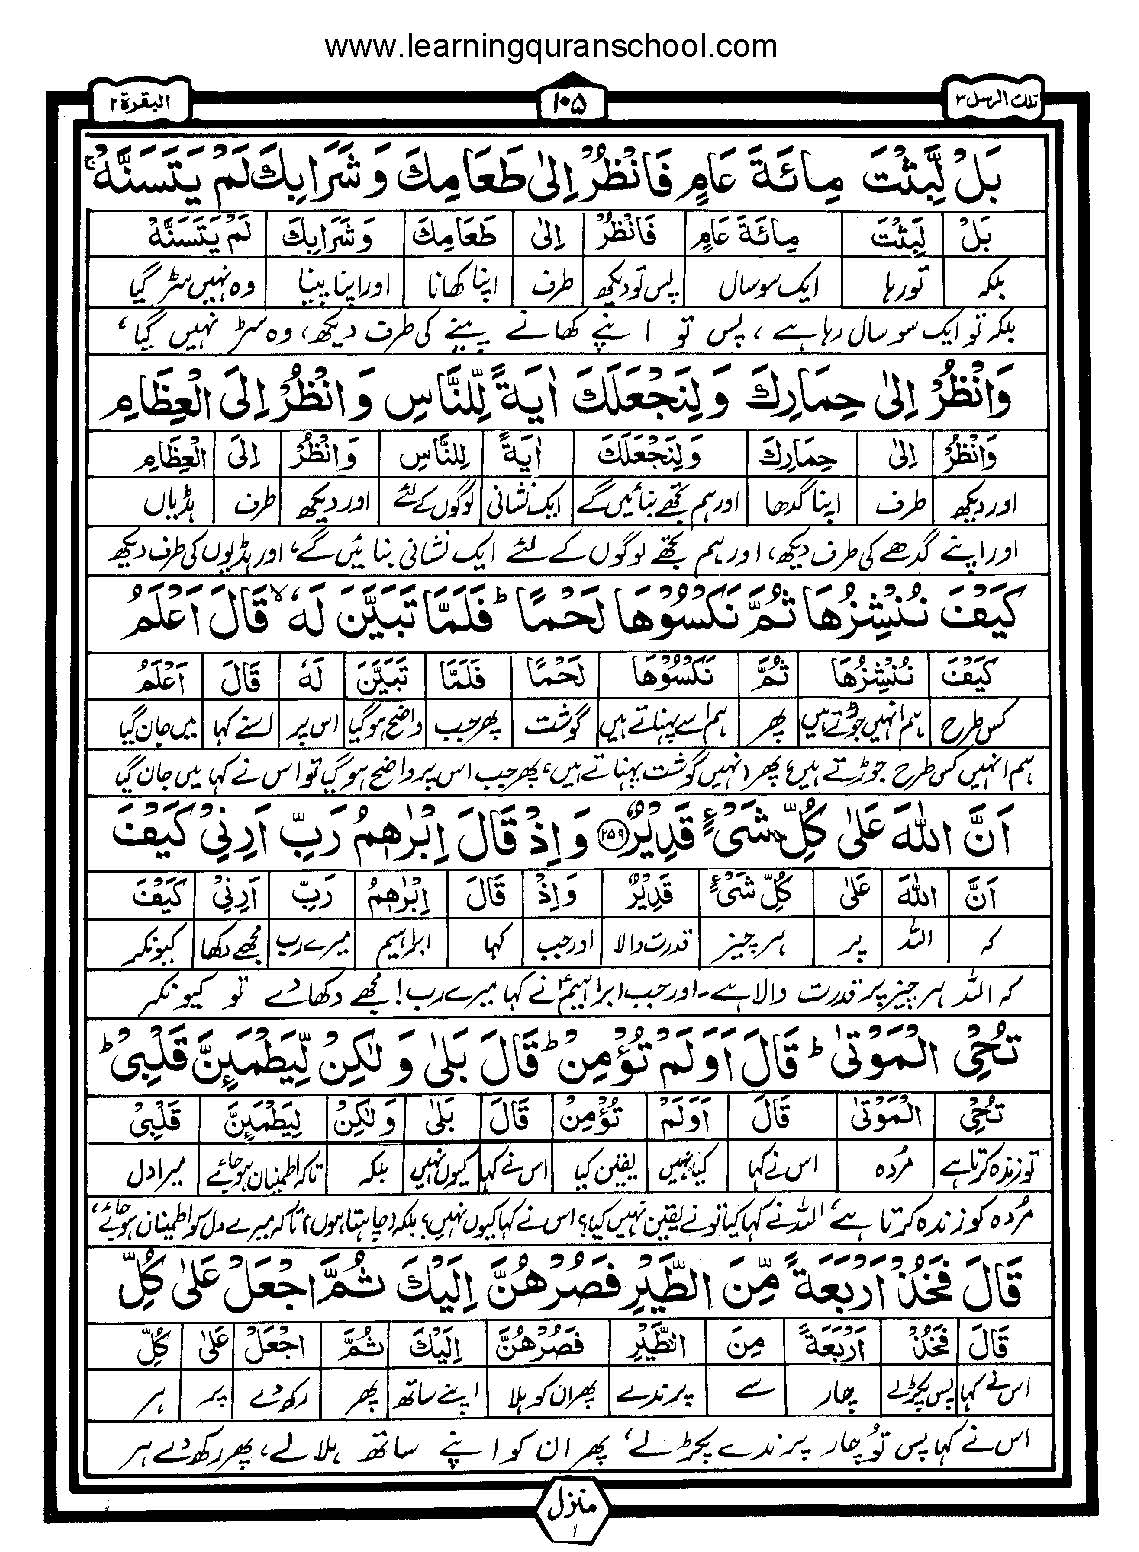 www.learningquranschool.com
تلك الرسل ٣
١٠٥
البقرة ٢
بَلْ لَّبِثْتَ مِائَةَ عَامٍ فَانْظُرْ اِلٰى طَعَامِكَ وَشَرَابِكَ لَمْ يَتَسَنَّهْ ۚ
بَلْ لَّبِثْتَ مِائَةَ عَامٍ فَانْظُرْ اِلٰى طَعَامِكَ وَشَرَابِكَ لَمْ يَتَسَنَّهْ
بلکہ تو رہا ایک سو سال پس تو دیکھ طرف اپنا کھانا اور اپنا پینا وہ نہیں سڑ گیا
بلکہ تو ایک سو سال رہا ہے ، پس تو اپنے کھانے پینے کی طرف دیکھ، وہ سڑ نہیں گیا،
وَانْظُرْ اِلٰى حِمَارِكَ وَلِنَجْعَلَكَ اٰيَةً لِّلنَّاسِ وَانْظُرْ اِلَى الْعِظَامِ
وَانْظُرْ اِلٰى حِمَارِكَ وَلِنَجْعَلَكَ اٰيَةً لِلنَّاسِ وَانْظُرْ اِلَى الْعِظَامِ
اور دیکھ طرف اپنا گدھا اور ہم تجھے بنائیں گے ایک نشانی لوگوں کے لئے اور دیکھ طرف ہڈیاں
اور اپنے گدھے کی طرف دیکھ، اور ہم تجھے لوگوں کے لئے ایک نشانی بنائیں گے، اور ہڈیوں کی طرف دیکھ
كَيْفَ نُنْشِزُهَا ثُمَّ نَكْسُوْهَا لَحْمًا ؕ فَلَمَّا تَبَيَّنَ لَهٗ ۙ قَالَ اَعْلَمُ
كَيْفَ نُنْشِزُهَا ثُمَّ نَكْسُوْهَا لَحْمًا فَلَمَّا تَبَيَّنَ لَهٗ قَالَ اَعْلَمُ
کس طرح ہم انہیں جوڑتے ہیں پھر ہم اسے پہناتے ہیں گوشت پھر جب واضح ہو گیا اس پر اسنے کہا میں جان گیا
ہم انہیں کس طرح جوڑتے ہیں، پھر (نہیں گوشت پہناتے ہیں، پھر جب اس پر واضح ہو گیا تو اس نے کہا میں جان گیا
اَنَّ اللّٰهَ عَلٰى كُلِّ شَيْءٍ قَدِيْرٌ ﴿٢٥٩﴾ وَاِذْ قَالَ اِبْرٰهٖمُ رَبِّ اَرِنِيْ كَيْفَ
اَنَّ اللّٰهَ عَلٰى كُلِّ شَيْءٍ قَدِيْرٌ وَاِذْ قَالَ اِبْرٰهٖمُ رَبِّ اَرِنِيْ كَيْفَ
کہ اللہ پر ہر چیز قدرت والا اور جب کہا ابراہیم میرے رب مجھے دکھا کیونکر
کہ اللہ ہر چیز پر قدرت والا ہے۔ اور جب ابراہیمؑ نے کہا میرے رب! مجھے دکھا دے تو کیونکر
تُحْيِ الْمَوْتٰى ؕ قَالَ اَوَلَمْ تُؤْمِنْ ؕ قَالَ بَلٰى وَلٰكِنْ لِّيَطْمَئِنَّ قَلْبِيْ ؕ
تُحْيِ الْمَوْتٰى قَالَ اَوَلَمْ تُؤْمِنْ قَالَ بَلٰى وَلٰكِنْ لِيَطْمَئِنَّ قَلْبِيْ
تو زندہ کرتا ہے مُردہ اس نے کہا کیا نہیں یقین کیا اس نے کہا کیوں نہیں بلکہ تاکہ اطمینان ہو جائے میرا دل
مُردہ کو زندہ کرتا ہے، اللہ نے کہا کیا تو نے یقین نہیں کیا؟ اس نے کہا کیوں نہیں؟ بلکہ (چاہتا ہوں) تاکہ میرے دل کو اطمینان ہو جائے،
قَالَ فَخُذْ اَرْبَعَةً مِّنَ الطَّيْرِ فَصُرْهُنَّ اِلَيْكَ ثُمَّ اجْعَلْ عَلٰى كُلِّ
قَالَ فَخُذْ اَرْبَعَةً مِنَ الطَّيْرِ فَصُرْهُنَّ اِلَيْكَ ثُمَّ اجْعَلْ عَلٰى كُلِّ
اس نے کہا پس پکڑ لے چار سے پرندے پھر ان کو ہلا اپنے ساتھ پھر رکھ دے پر ہر
اس نے کہا پس تو چار پرندے پکڑ لے، پھر ان کو اپنے ساتھ ہلا لے، پھر رکھ دے ہر
منزل ١